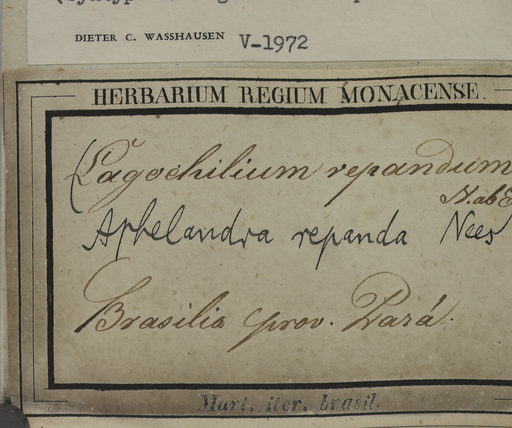 DIETER C. WASSHAUSEN V-1972
HERBARIUM REGIUM MONACENSE.
(Lagochilium repandum
N. ab E
Aphelandra repanda Nees
Brasilia prov. Pará.
Mart. iter. brasil.